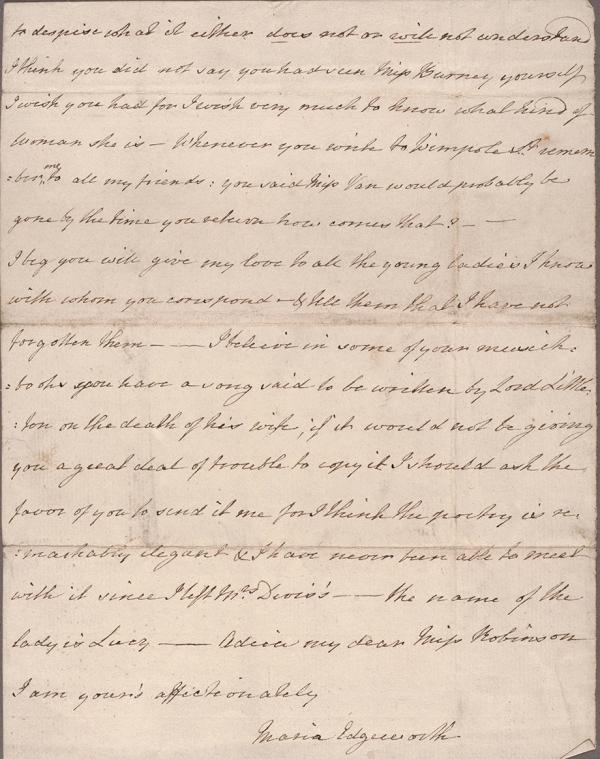 to despise what it either does not or will not understand
I think you did not say you had seen Miss Burney yourself
I wish you had for I wish very much to know what kind of
woman she is — Whenever you write to Wimpole St remem
:ber me to all my friends: you said Miss Van would probably be
gone by the time you return how comes that? — —
I beg you will give my love to all the young ladies I know
with whom you correspond & tell them that I have not
forgotten them — — I beleive in some of your musick:
:books you have a song said to be written by Lord Little:
:ton on the death of his wife, if it would not be giving
you a great deal of trouble to copy it I should ask the
favor of you to send it me for I think the poetry is re:
:markably elegant & I have never been able to meet
with it since I left Mrs Deviss's — — the name of the
lady is Lucy — — Adieu my dear Miss Robinson
I am your's affectionately
Maria Edgeworth